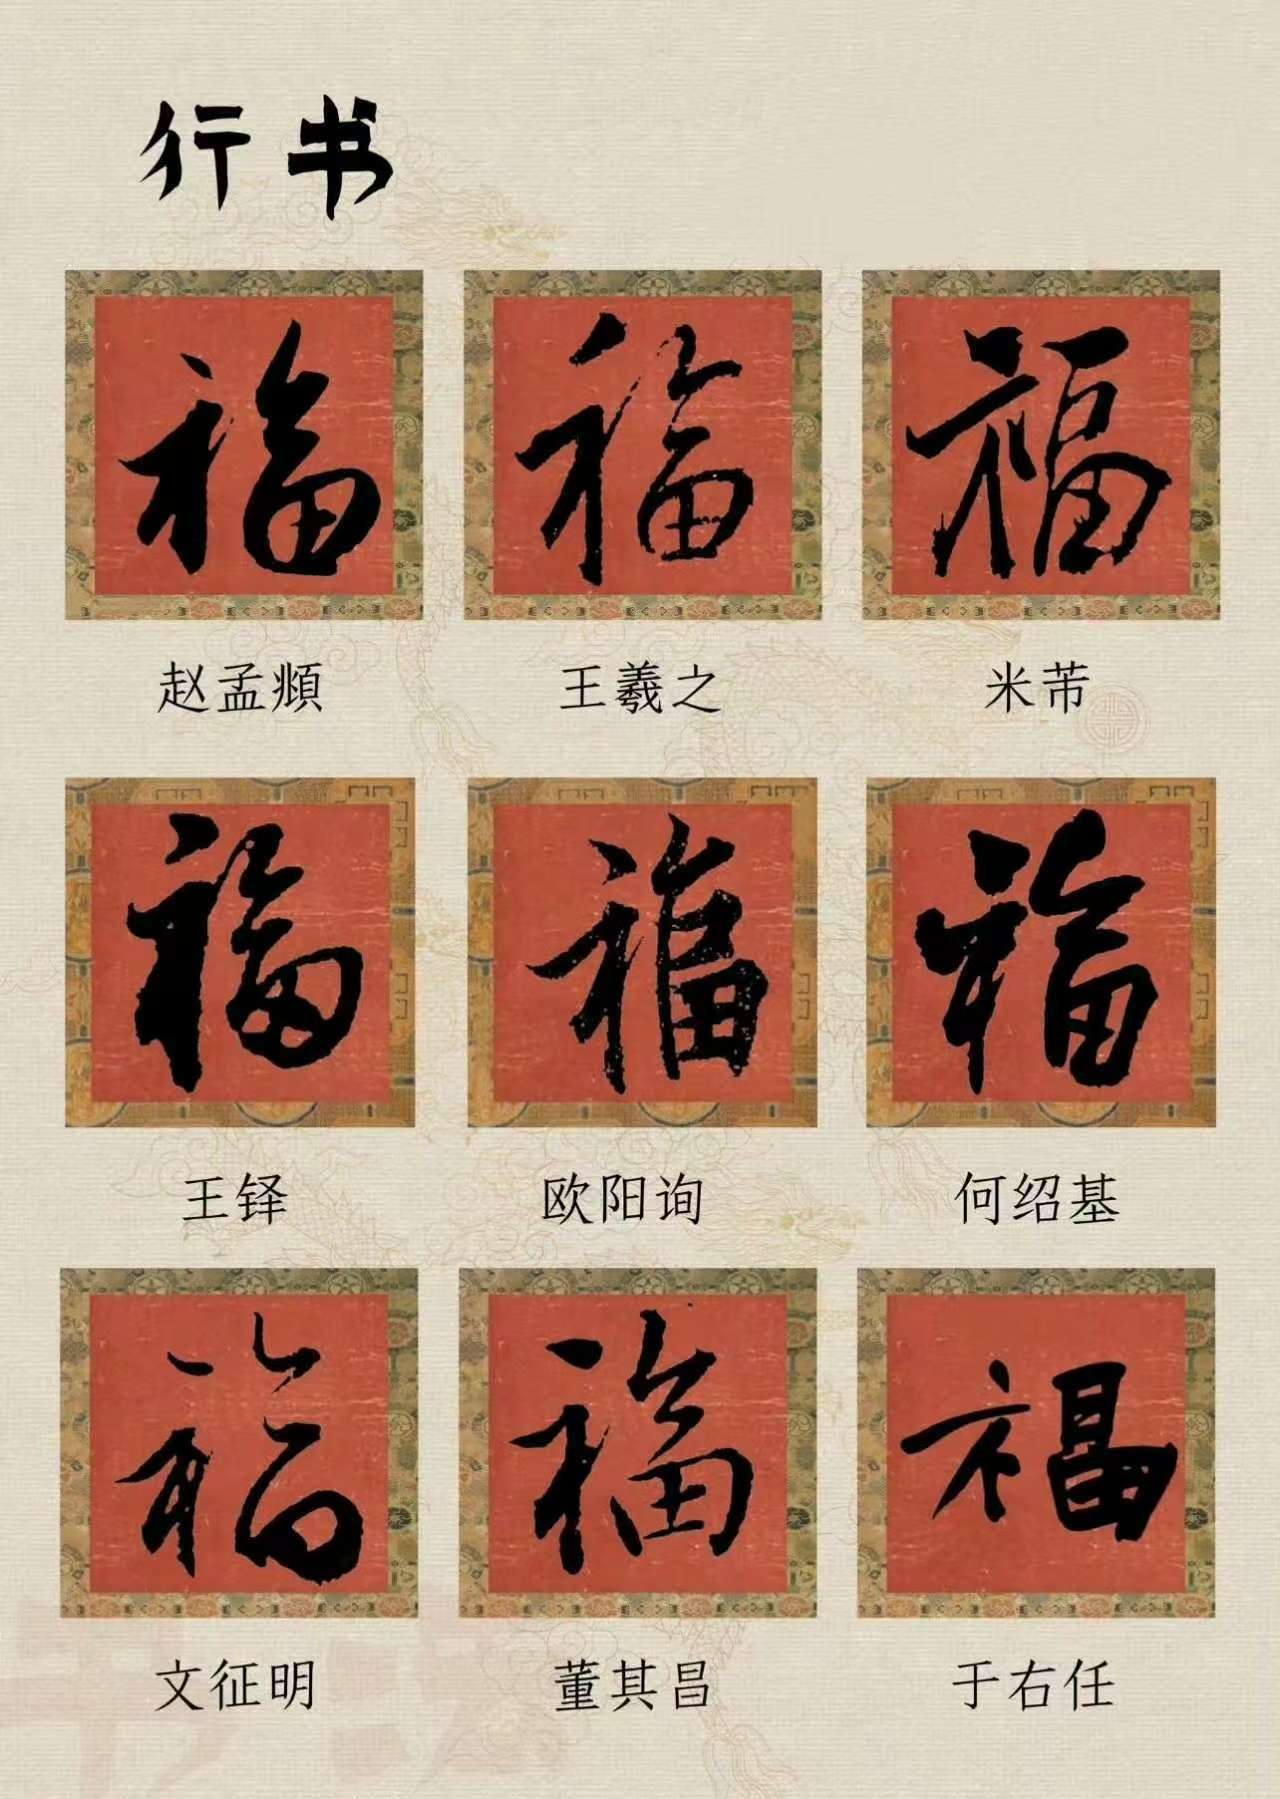 行书
福 福 福
赵孟頫 王羲之 米芾
福 福 福
王铎 欧阳询 何绍基
福 福 福
文征明 董其昌 于右任